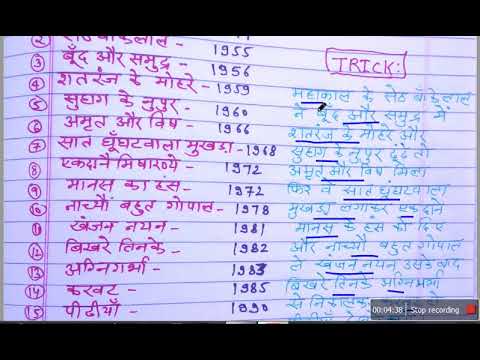 2
3 बूँद और समुद्र - 1956
1955
4 शतरंज के मोहरे - 1959
5 सुहाग के नुपुर - 1960
6 अमृत और विष - 1966
7 सात घूँघटवाला मुखडा - 1968
8 एकदा नैमिषारण्ये - 1972
9 मानस का हंस - 1972
10 नाच्यौं बहुत गोपाल - 1978
11 खंजन नयन - 1981
12 बिखरे तिनके - 1982
13 अग्निगर्भा - 1983
14 करवट - 1985
15 पीढीयाँ - 1990
TRICK:
महाकाल के सेठ बाँकेलाल
ने बूँद और समुद्र में
शतरंज के मोहरे और
सुहाग के नुपुर ढूंढे तो
अमृत और विष मिला
फिर वे सात घूँघटवाला
मुखडा लगाकर एकदा ने
मानस के हंस को दिए
और नाच्यौ बहुत गोपाल
ले खंजन नयन उसके बाद
बिखरे तिनके अग्निगर्भा
से निकालकर
00:04:38 Stop recording